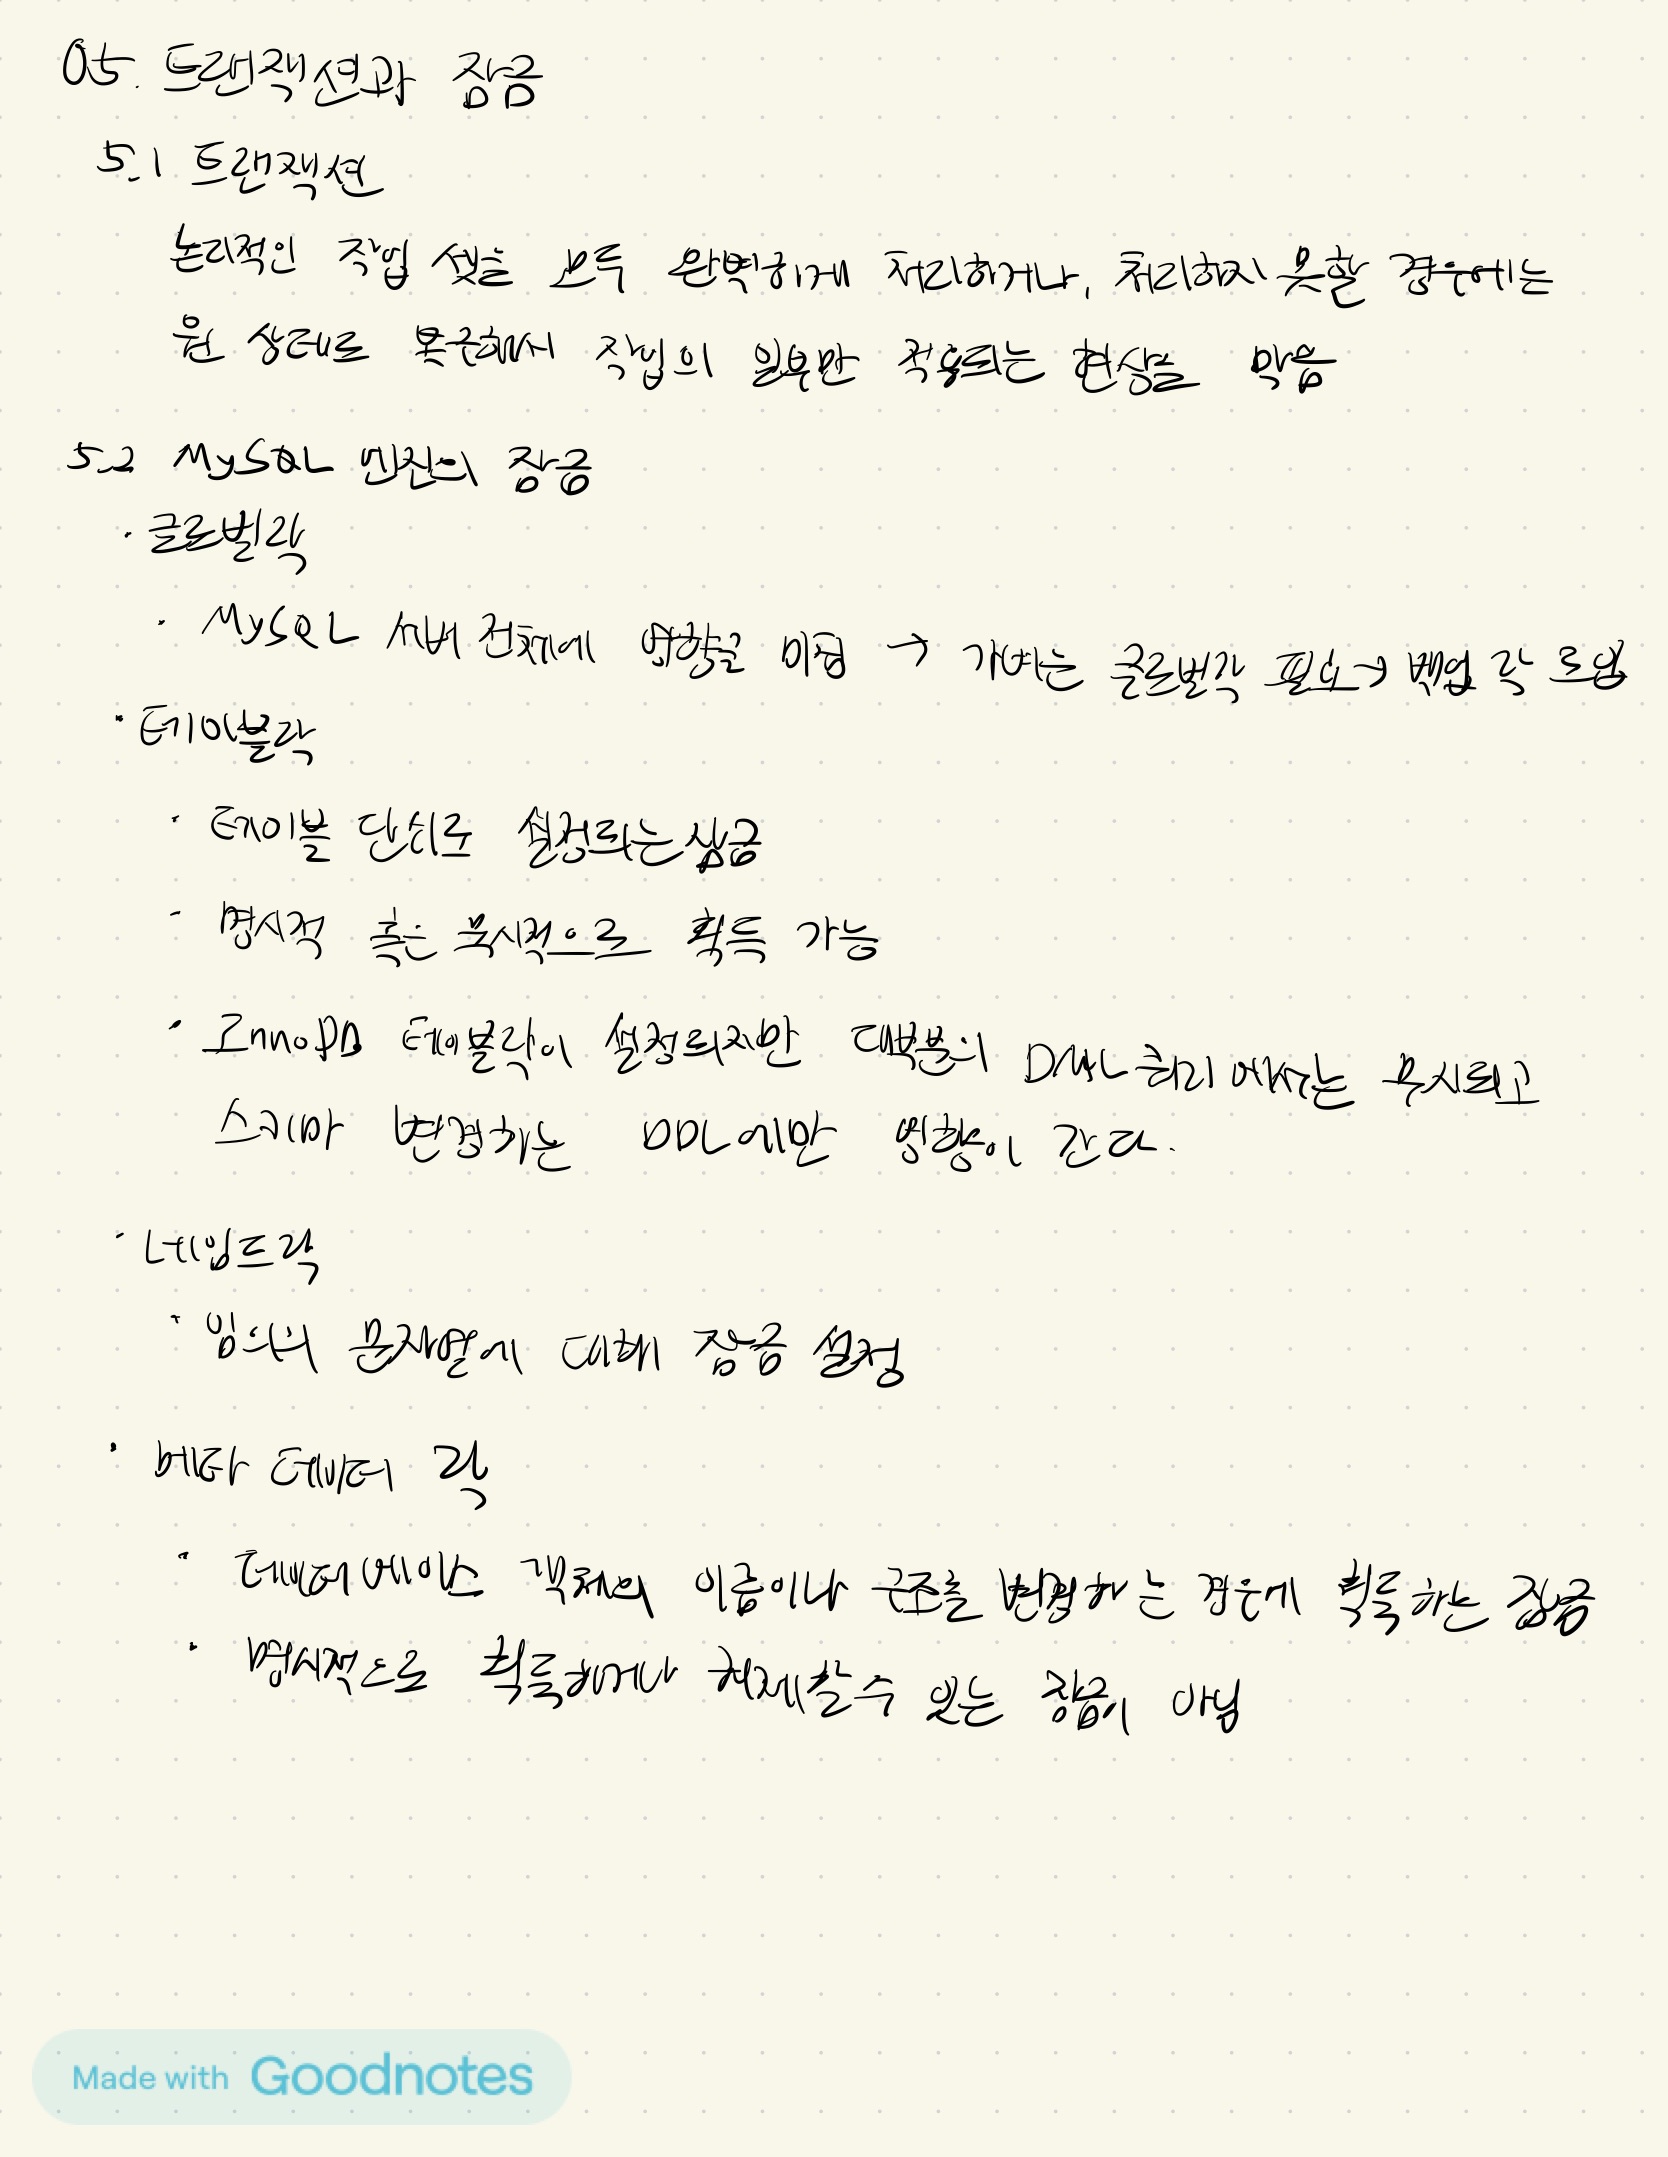 05. 트랜잭션과 잠금
5.1 트랜잭션
논리적인 작업 셋을 모두 완벽하게 처리하거나, 처리하지 못할 경우에는
원 상태로 복구해서 작업의 일부만 적용되는 현상을 막음
5.2 MySQL 엔진의 잠금
· 글로벌락
· MySQL 서버 전체에 영향을 미침 → 가벼운 글로벌락 필요 → 백업 락 도입
· 테이블락
· 테이블 단위로 설정되는 잠금
- 명시적 혹은 묵시적으로 획득 가능
· InnoDB 테이블락이 설정되지만 대부분의 DML 쿼리에서는 무시되고
스키마 변경하는 DDL에만 영향이 간다.
· 네임드락
· 임의의 문자열에 대해 잠금 설정
· 메타 데이터 락
· 데이터베이스 객체의 이름이나 구조를 변경하는 경우에 획득하는 잠금
· 명시적으로 획득하거나 해제할 수 있는 잠금이 아님
Made with Goodnotes